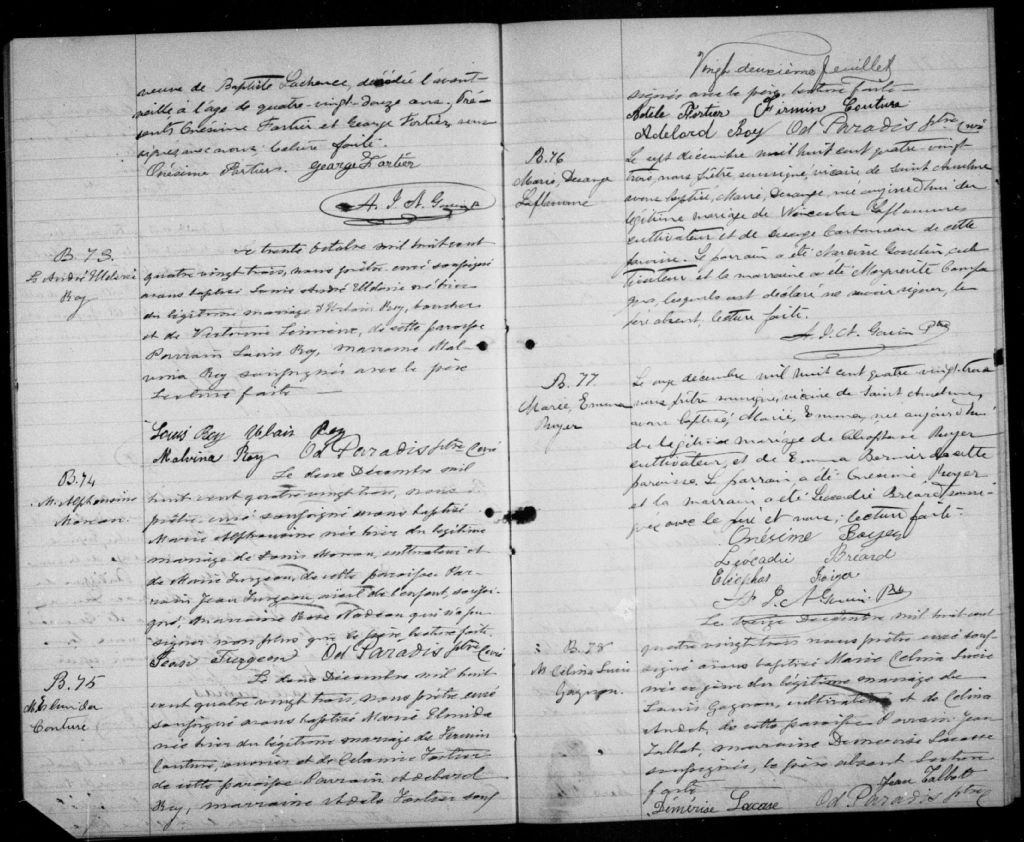 veuve de Baptiste Lachance, décédée l'avant-
veille à l'age de quatre-vingt-douze ans. Pré-
sents Onésime Fortier et George Fortier, sous-
signés avec nous. Lecture faite.
Onésime Fortier. George Fortier
A. J. A. Ptre
B. 73.
L. André Uldoric
Roy
Le trente Octobre mil huit cent
quatre vingt trois, nous prêtre curé soussigné
avons baptisé Louis André Uldoric né hier
du légitime mariage d'Urbain Roy, boucher
et de Victorine de cette paroisse
Parrain Louis Roy, marraine Mal-
vina Roy soussignés avec le père
Lecture faite
Louis Roy Urbain Roy
Malvina Roy Od Paradis ptre Curé
B. 74
M. Alphonsine
Moreau.
Le deux Décembre mil
huit cent quatre vingt trois, nous
prêtre, curé soussigné avons baptisé
Marie Alphonsine née hier du légitime
mariage de Louis Moreau, cultivateur et
de Marie Turgeon, de cette paroisse. Par-
rain Jean Turgeon, aieul de l'enfant, soussi-
gné, marraine Rose Nadeau qui n'a pu
signer non plus que le père, lecture faite.
Jean Turgeon Od Paradis ptre Curé
B. 75
M. Elmida
Couture
Le deux Décembre mil huit
cent quatre vingt trois, nous prêtre curé
soussigné avons baptisé Marie Elmida
née hier du légitime mariage de Firmin
Couture, ouvrier et de Fortier
de cette paroisse Parrain Adelard
Roy, marraine Adèle Fortier sous
Vingt deuxième feuillet
signés avec le père, lecture faite
Adèle Fortier Firmin Couture
Adelard Roy Od Paradis ptre Curé
B. 76
Marie, Desange
Laflamme
Le sept décembre mil huit cent quatre vingt
trois, nous prêtre soussigné, vicaire de Saint Anselme
avons baptisé, Marie, Desange, née aujourd'hui du
légitime mariage de Laflamme,
cultivateur et de Carbonneau de cette
paroisse. Le parrain a été Narcisse Gosselin cul-
tivateur et la marraine a été Marguerite
lesquels ont déclaré ne savoir signer, le
père absent. lecture faite.
A. J. A. Ptre
B. 77
Marie, Emma
Royer
Le onze décembre mil huit cent quatre vingt-trois
nous prêtre soussigné, vicaire de Saint Anselme,
avons baptisé, Marie, Emma, née aujourd'hui
de légitime mariage de Cléophase Royer
cultivateur, et de Emma Bernier de cette
paroisse. Le parrain, a été Onésime Royer
et la marraine a été Léocadie Bréard, sousi-
gnés avec le père et nous; lecture faite.
Onésime Royer
Léocadie Bréard
Cléophas Roger
A. J. A. Ptre
B. 78
M. Celina Lucie
Gagnon.
Le treize Décembre mil huit cent
quatre vingt trois nous prêtre curé sous-
signé avons baptisé Marie Celina Lucie
née ce jour du légitime mariage de
Louis Gagnon, cultivateur et de Celina
Audet, de cette paroisse Parrain Jean
Talbot, marraine Demerise Lacasse
soussignés, le père absent Lecture
faite
Jean Talbott
Démérise Lacase Od Paradis ptre